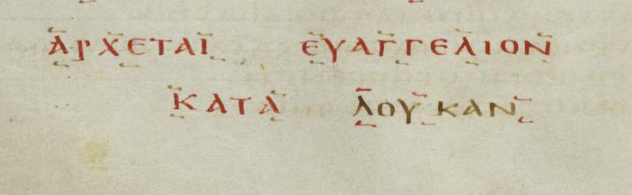 ΑΡΧΕΤΑΙ ΕΥΑΓΓΕΛΙΟΝ
ΚΑΤΑ ΛΟΥΚΑΝ